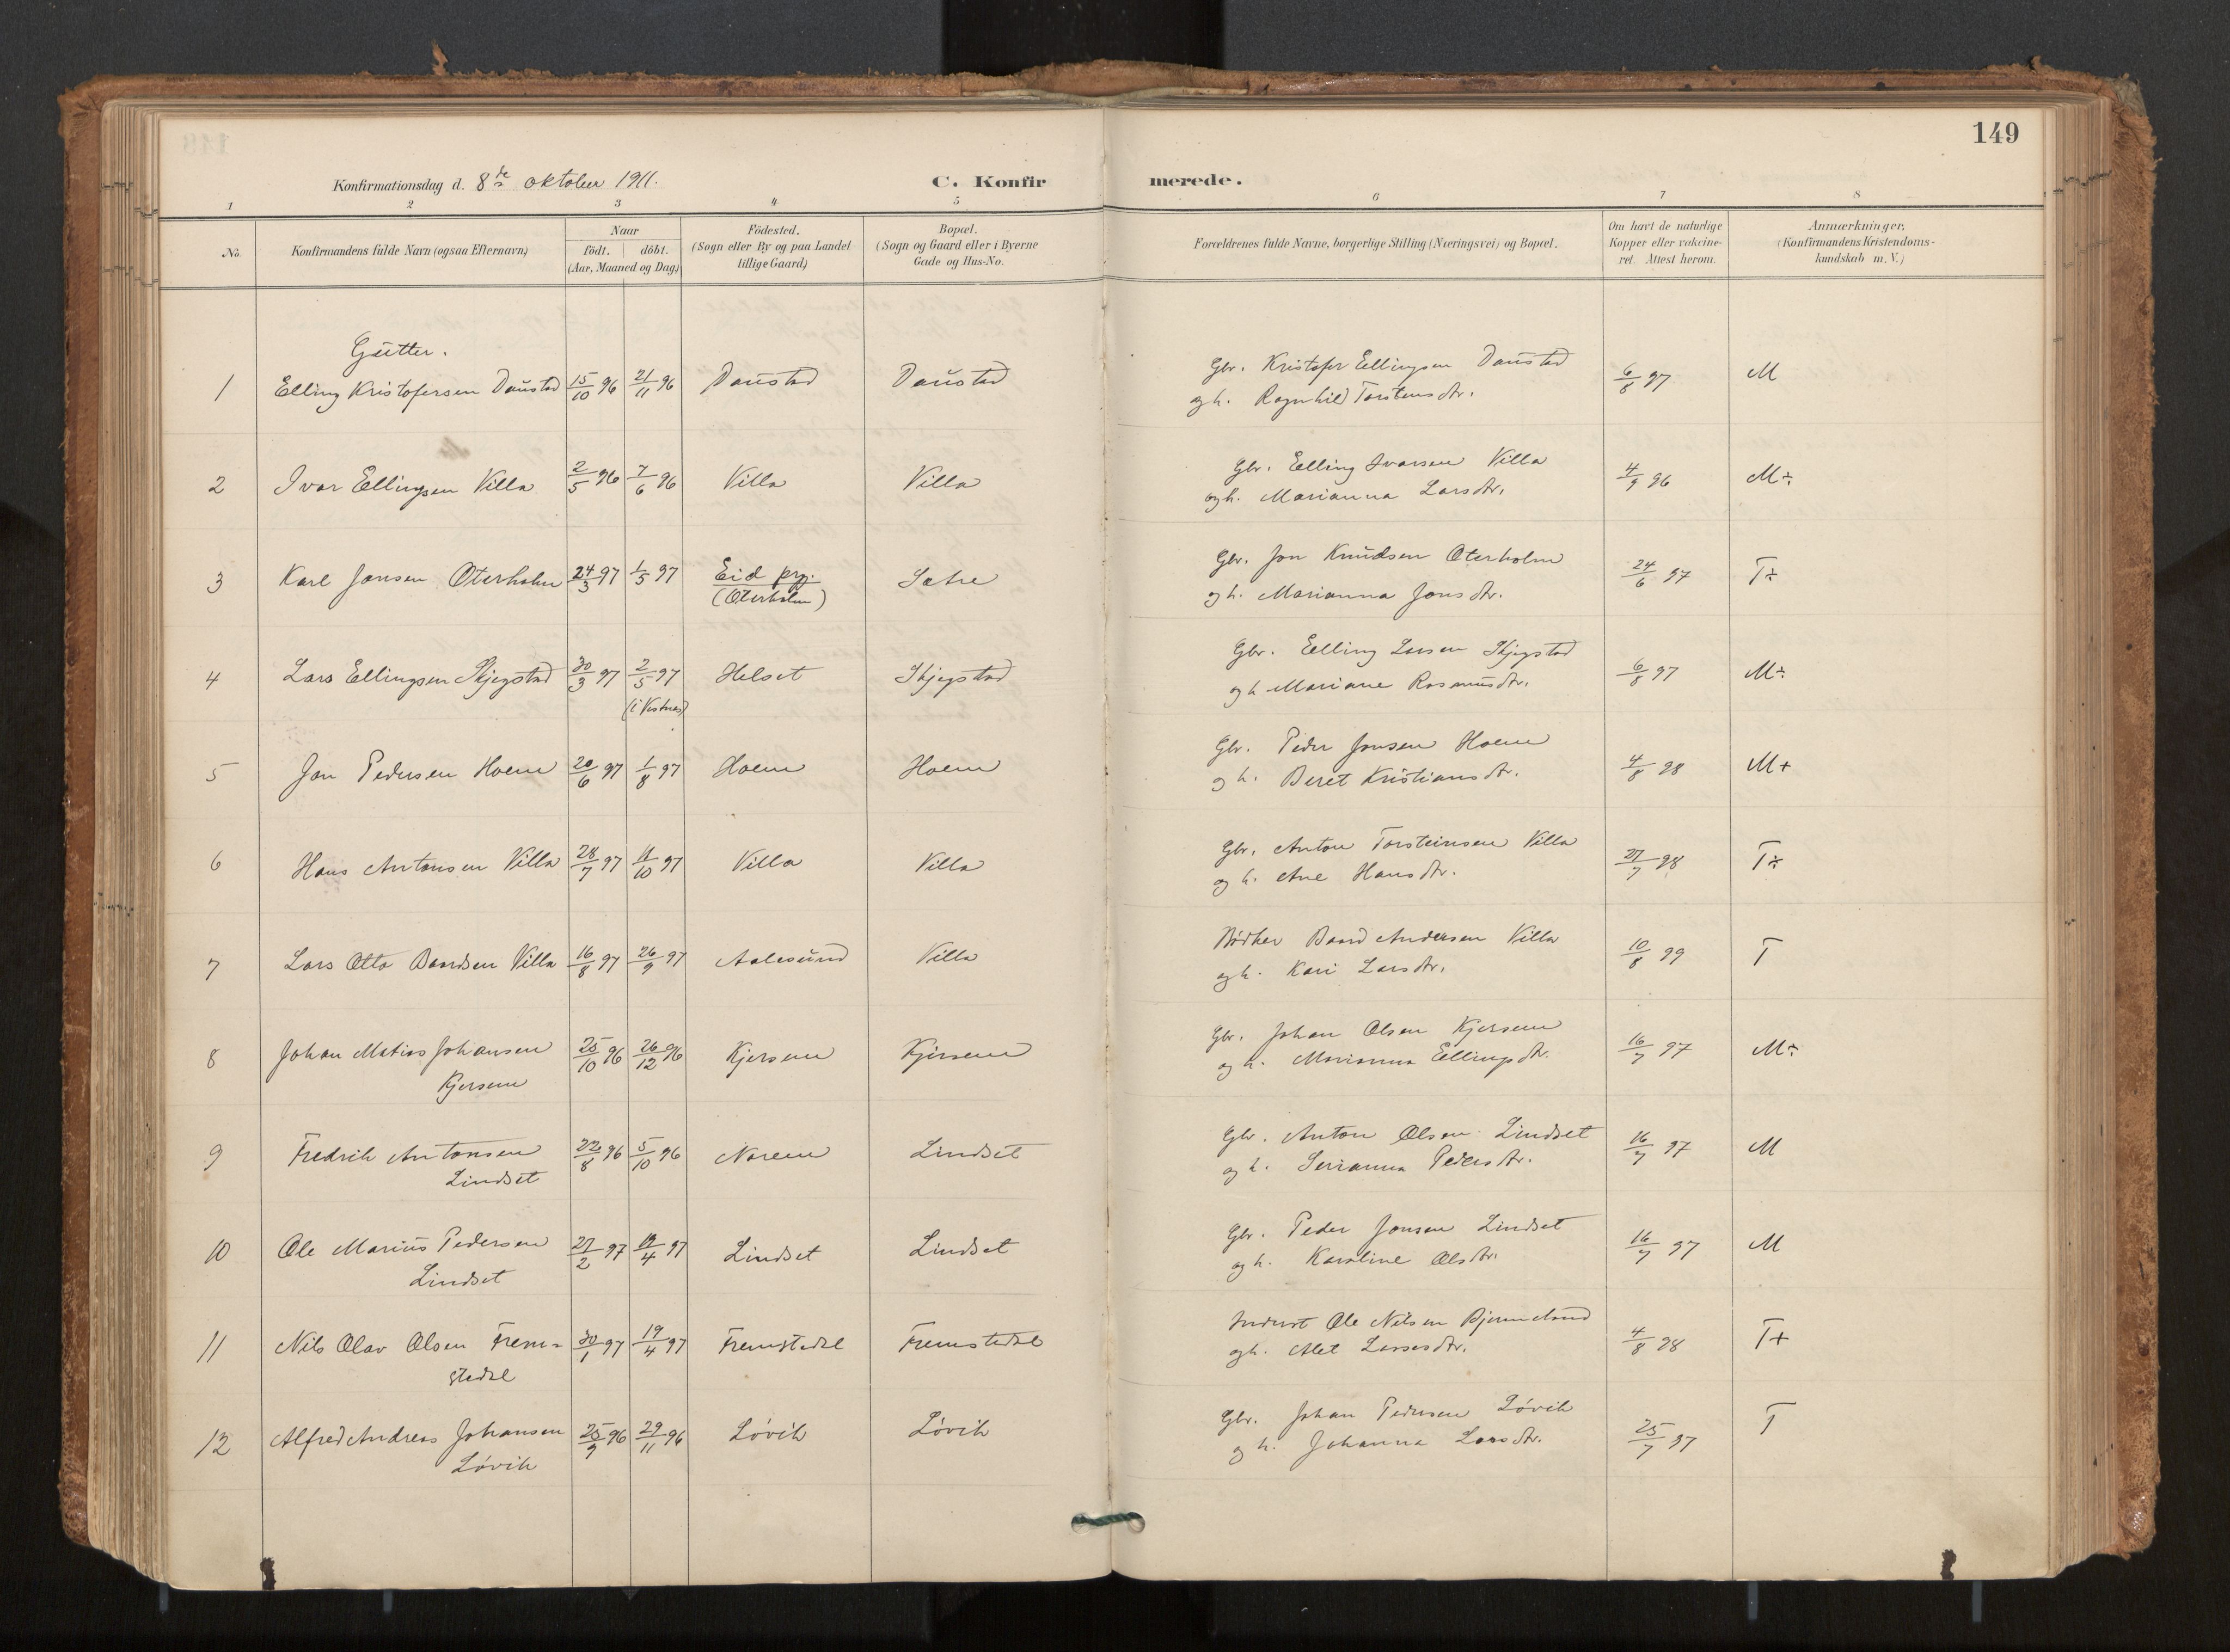 149
Konfirmationsdag d. 8de oktober 1911.
C. Konfirmerede.
1 2 3 4 5 6 7 8
No.
Konfirmandens fulde Navn (ogsaa Efternavn)
Naar
födt. döbt.
(Aar, Maaned og Dag)
Födested.
(Sogn eller By og paa Landet
tillige Gaard)
Bopæl.
(Sogn og Gaard eller i Byerne
Gade og Hus-No.
Forældrenes fulde Navne, borgerlige Stilling (Næringsvei) og Bopæl.
Om havt de naturlige
Kopper eller vakcine-
ret. Attest herom.
Anmærkninger,
(Konfirmandens Kristendoms-
kundskab m. V.)
Gutter.
1 Elling Kristofersen Daustad 15/10 96 21/11 96 Daustad Daustad Gbr. Kristofer Ellingsen Daustad 6/8 97 M
og h. Ragnhild Torstensdtr.
2 Ivar Ellingsen Villa 2/5 96 7/6 96 Villa Villa Gbr. Elling Ivarsen Villa 4/9 96 M÷
og h. Marianna Larsdtr.
3 Karl Jonsen Oterholm 24/3 97 1/5 97 Eid prg. Sætre Gbr. Jon Knudsen Oterholm 24/6 97 T÷
(Oterholm) og h. Marianna Jonsdtr.
4 Lars Ellingsen Skjegstad 30/3 97 2/5 97 Helset Skjegstad Gbr. Elling Larsen Skjegstad 6/8 97 M÷
(i Vestnes) og h Mariane Rasmusdtr.
5 Jon Pedersen Hoem 20/6 97 1/8 97 Hoem Hoem Gbr. Peder Jonsen Hoem 4/8 98 M+
og h. Beret Kristiansdtr.
6 Hans Antonsen Villa 28/7 97 11/10 97 Villa Villa Gbr. Anton Torsteinsen Villa 27/7 98 T÷
og h. Ane Hansdtr.
7 Lars Otto Baardsen Villa 16/8 97 26/9 97 Aalesund Villa Bødker Baard Andersen Villa 10/8 99 T
og h. Kari Larsdtr.
8 Johan Matias Johansen 25/10 96 26/12 96 Kjersem Kjersem Gbr. Johan Olsen Kjersem 16/7 97 M÷
Kjersem og h. Marianna Ellingsdtr.
9 Fredrik Antonsen 22/8 96 5/10 96 Norem Lindset Gbr. Anton Olsen Lindset 16/7 97 M
Lindset og h. Serianna Pedersdtr.
10 Ole Marius Pedersen 27/2 97 19/4 97 Lindset Lindset Gbr. Peder Jonsen Lindset 16/7 97 M
Lindset og h. Karoline Olsdtr.
11 Nils Olav Olsen Frem= 30/1 97 19/4 97 Fremstedal Fremstedal Ole Nilsen 4/8 98 T+
stedal og h. Alet Larsesdtr.
12 Alfred Andreas Johansen 25/9 96 29/11 96 Løvik Løvik Gbr. Johan Pedersen Løvik 25/7 97 T
Løvik og h. Johanna Larsdtr.